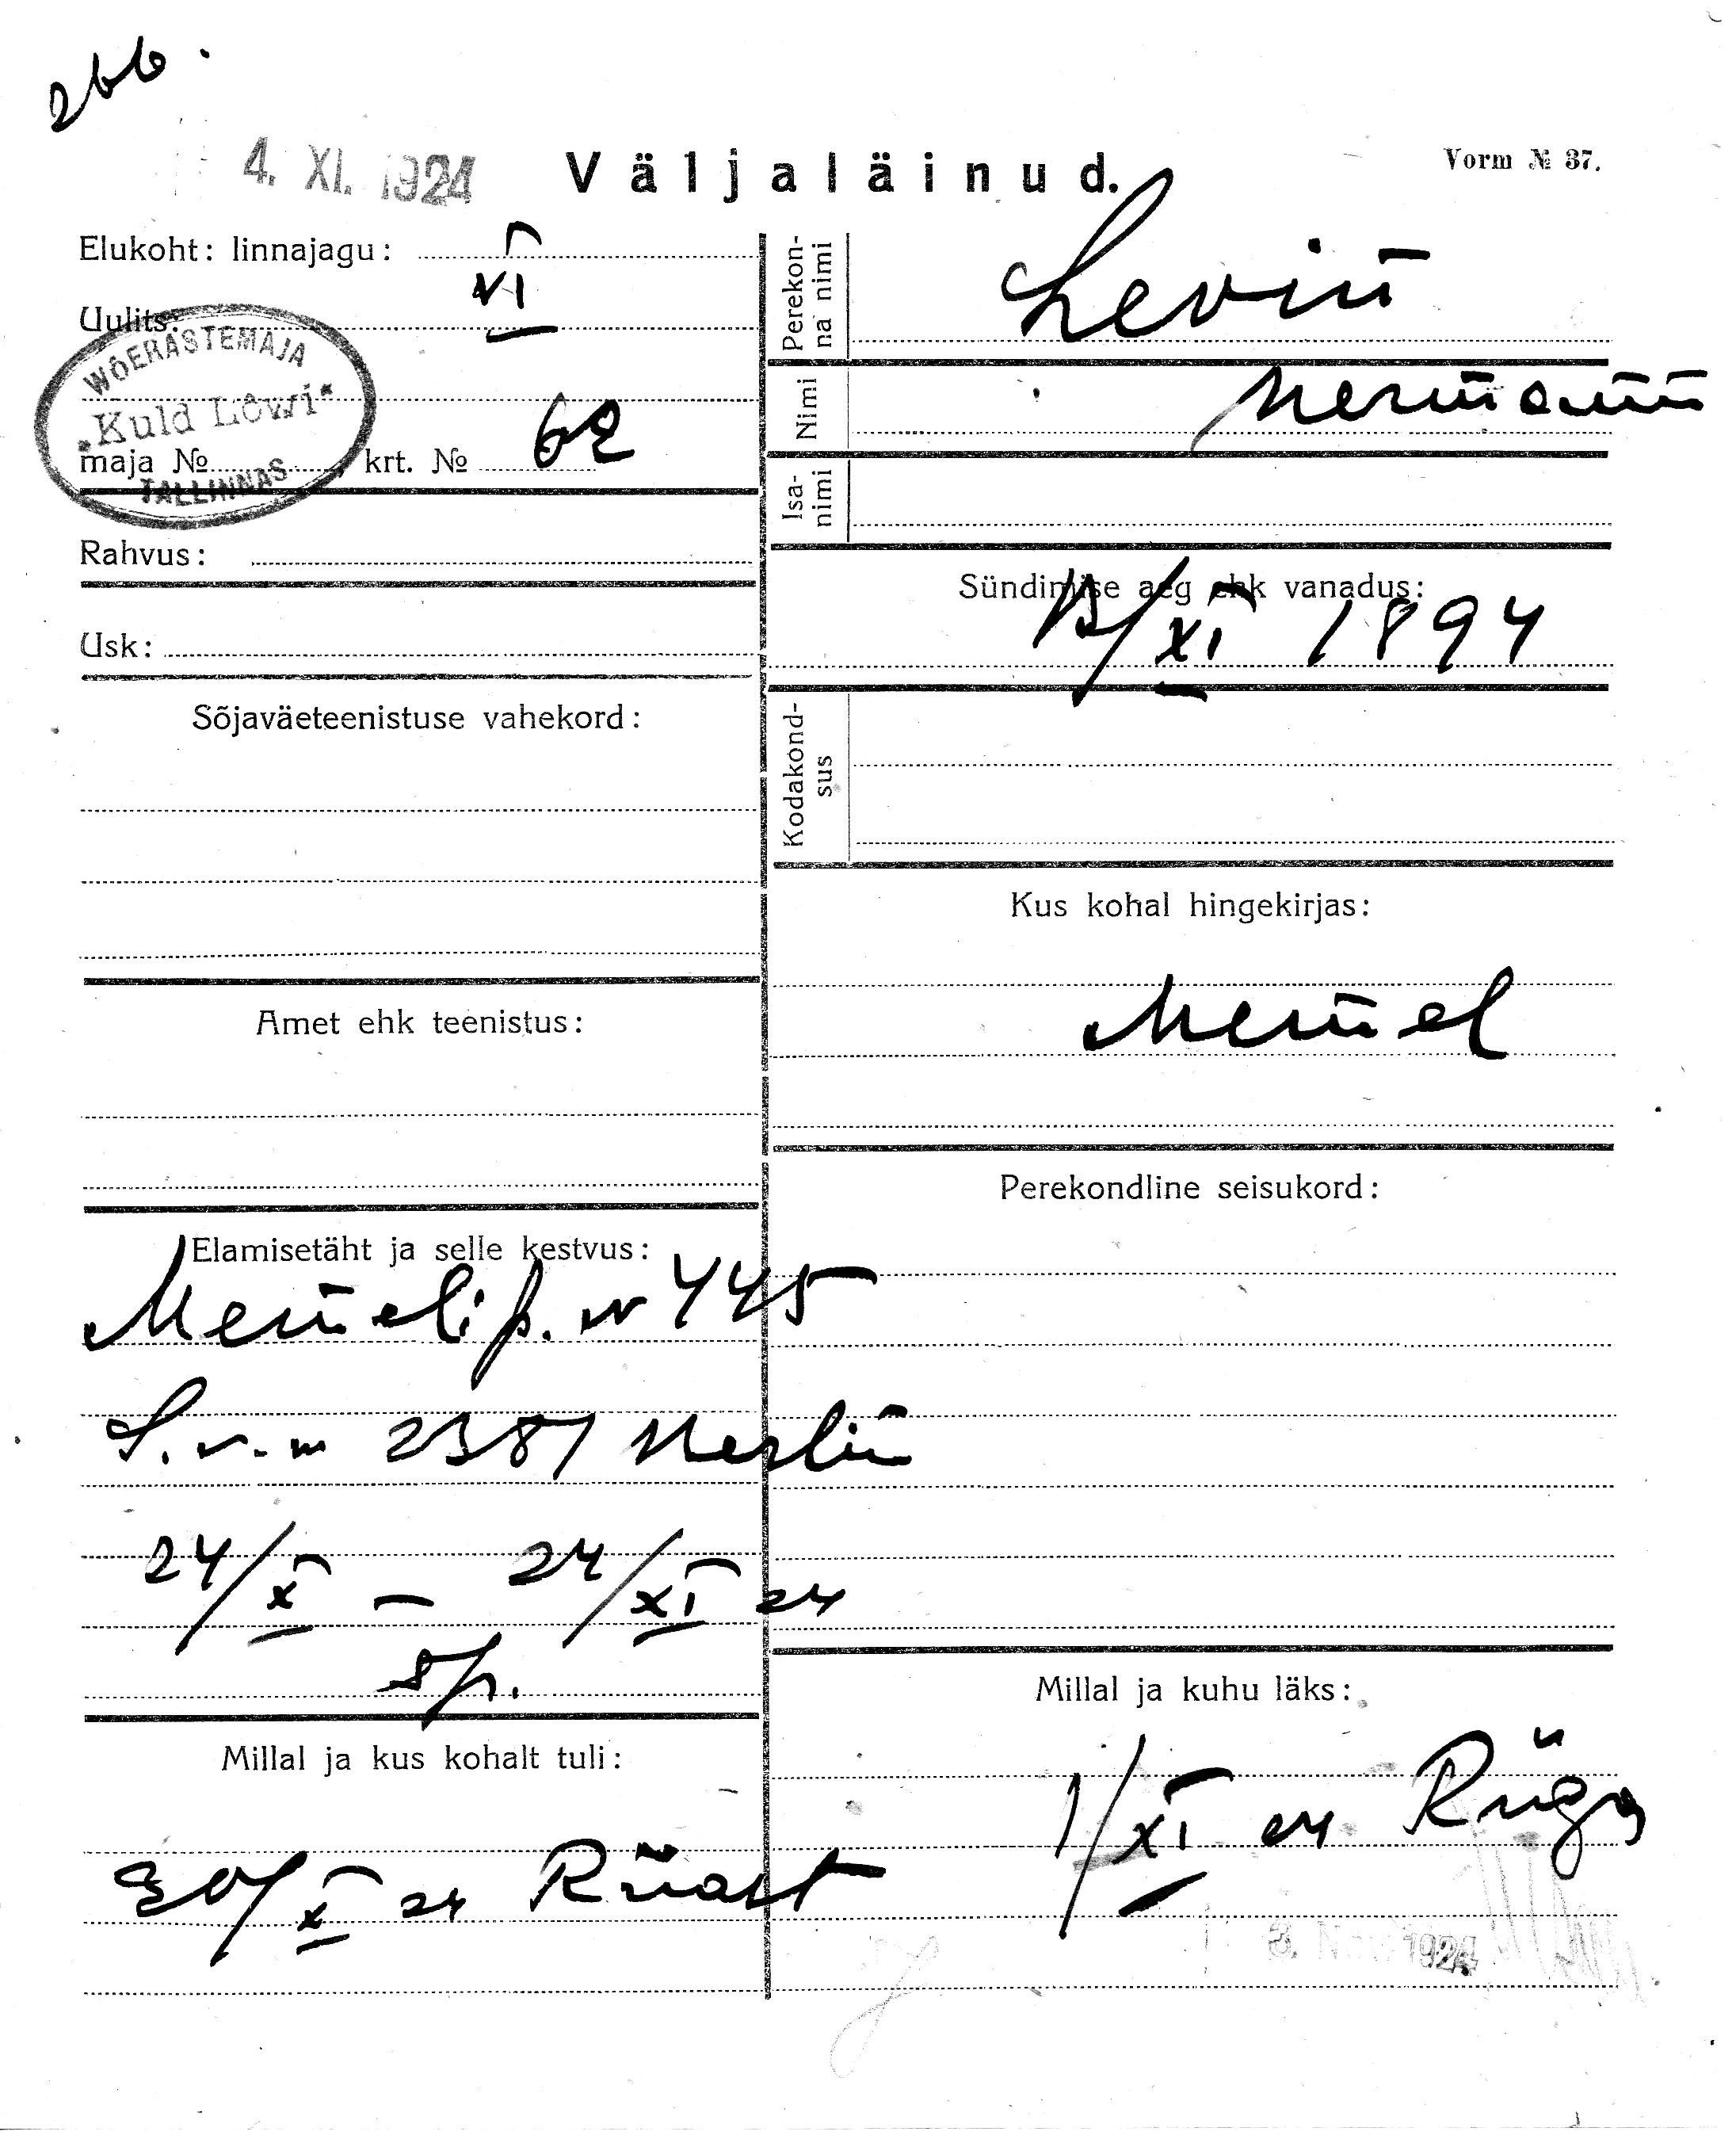 266.
4. XI. 1924
Väljaläinud.
Vorm № 37.
Elukoht: linnajagu:
VI
Uulits:
WÕERASTEMAJA
„Kuld Lõwi“
TALLINNAS
maja № , krt. № 62
Rahvus:
Usk:
Sõjaväeteenistuse vahekord:
Amet ehk teenistus:
Elamisetäht ja selle kestvus:
Memeli p. N 445
S. v. m 2381 Berlin
24/X – 24/XI 24
Millal ja kus kohalt tuli:
30/X 24 Riiast
Perekon-
na nimi
Levin
Nimi
Hermann
Isa-
nimi
Sündimise aeg ehk vanadus:
/XI 1894
Kodakond-
sus
Kus kohal hingekirjas:
Memel
Perekondline seisukord:
Millal ja kuhu läks:
1/XI 24 Riiga
3. Nov. 1924